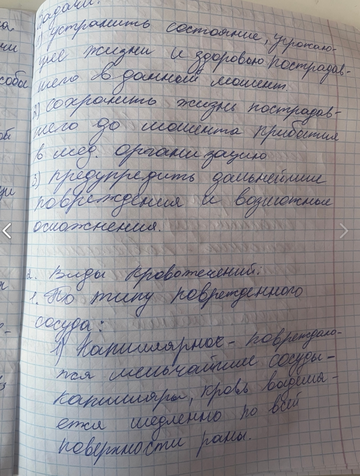 Задачи:
1) устранить состояние, угрожаю-
щее жизни и здоровью пострадав-
шего в данный момент
2) сохранить жизнь пострадав-
шего до момента прибытия
в мед. организацию
3) предупредить дальнейшие
повреждения и возможные
осложнения.
2. Виды кровотечений.
1. По типу поврежденного
сосуда:
1) Капиллярное - повреждаю-
тся мельчайшие сосуды -
капилляры, кровь выделя-
ется медленно по всей
поверхности раны.